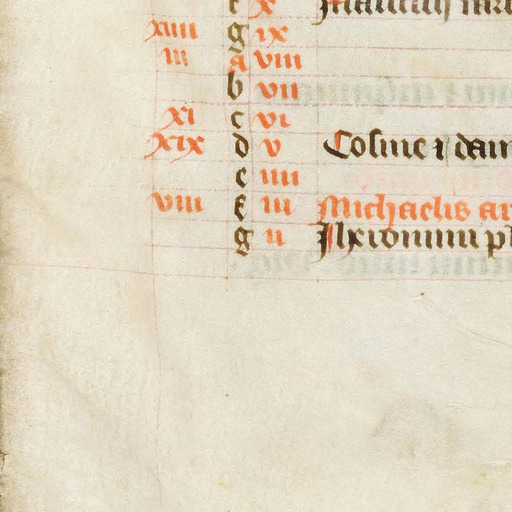 e x
xiiii g ix
iii a viii
b vii
xi c vi
xix d v Cosme ⁊ dam
e iiii
viii f iii Michaelis ar
g ii Jheronimi p